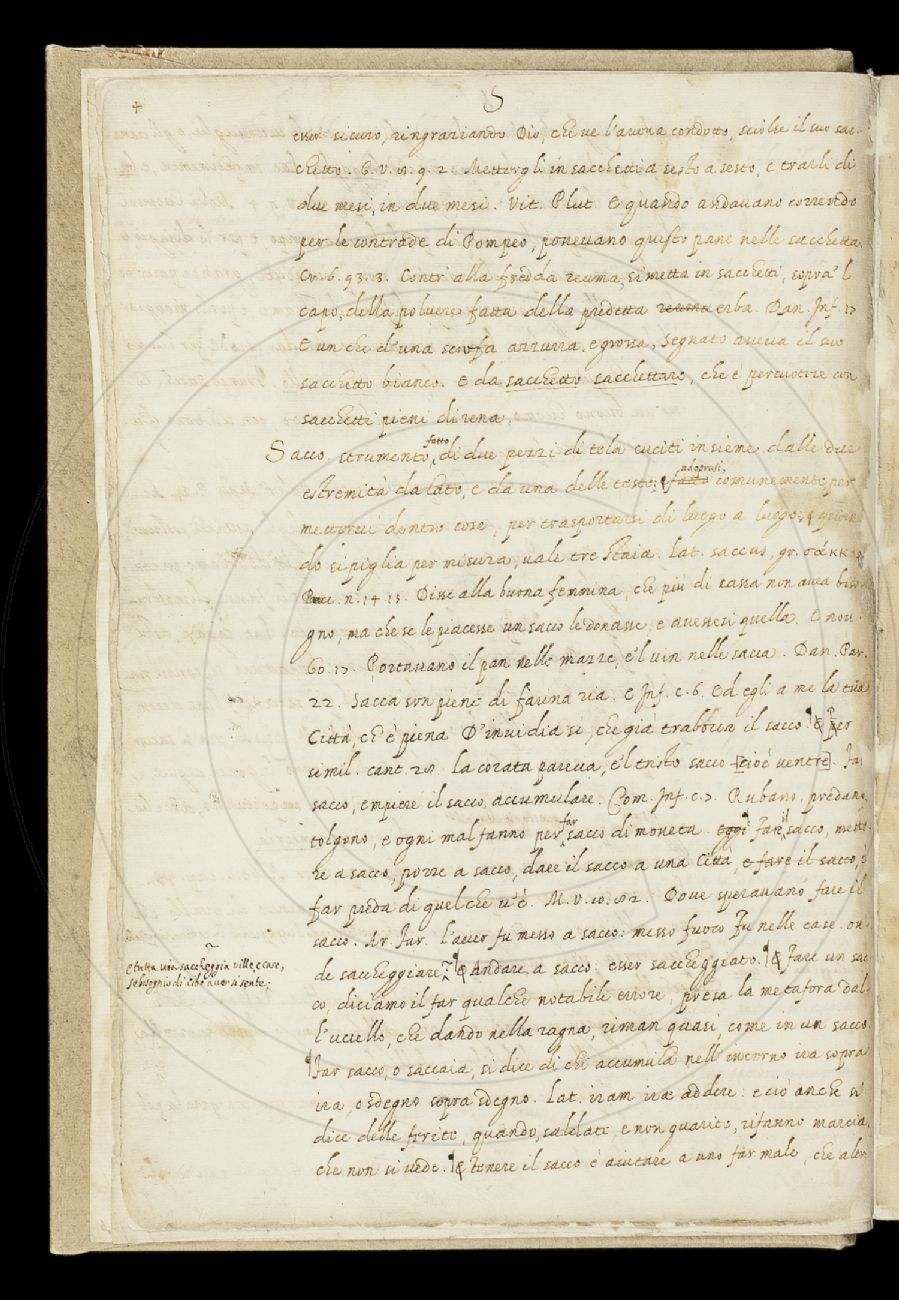 S
esser sicuro, ringraziando Dio, che ve l'aueua condotto, sciolse il suo sac-
chetto. G. V. 8. 9. 2. Mettergli in sacchetti a sesto a sesto, e trarli di
due mesi, in due mesi. Vit. Plut. E quando andauano correndo
per le contrade di Pompeo, poneuano questo pane nelle sacchetta.
Cr. 6. 93. 3. Contr' alla fredda reuma, si metta in sacchetti, sopra 'l
capo, della poluere fatta della predetta reuma erba. Dan. Inf. 17
E un che d'una scrofa azzurra, e grossa, Segnato aueua il suo
sacchetto bianco. E da sacchetto sacchettare, che è percuotere con
sacchetti pieni di rena.
Sacco, strumento fatto di due pezzi di tela cuciti insieme dalle due
estremità da lato, e da una delle teste: fatto adoprasi comunemente per
metterui dentro cose, per trasportarsi di luogo a luogo; e quan
do si piglia per misura, uale tre staia. Lat. saccus, gr. σάκκος
Bocc. n. 14 15. Disse alla buona femmina, che più di cassa non auea biso
gno, ma che se le piacesse un sacco le donasse, e auessesi quella. E nou.
60. 17. Portauano il pan nelle mazze, e 'l uin nelle sacca. Dan. Par.
22. Sacca son piene di farina ria. E Inf. c. 6. Ed egli a me la tua
Città, ch' è piena D'inuidia sì, che già trabocca il sacco. E Per
simil. cant. 28. La corata pareua, e 'l tristo sacco [cioè ventre]. Far
sacco, empiere il sacco, accumulare. Com. Inf. c. 7. Rubano, predano,
tolgono, e ogni mal fanno per far sacco di moneta. oggi Fare il sacco, mette-
re a sacco, porre a sacco, dare il sacco a una Città, e fare il sacco, è
far preda di quel che u'è. M. V. 10. 82. Doue sperauano fare il
sacco. Ar. Fur. L'auer fu messo a sacco: messo fuoco Fu nelle case. on-
de saccheggiare. E Andare a sacco: esser saccheggiato. E Fare un sac
co, diciamo il far qualche notabile errore, presa la metafora dal-
l'uccello, che dando nella ragna, riman quasi, come in un sacco.
Far sacco, o saccaia, si dice di chi accumula nell' interno ira sopra
ira, o sdegno sopra sdegno. Lat. iram irae addere: e ciò anche si
dice delle ferite, quando, saldate, e non guarite, rifanno marcia,
che non si uede. E Tenere il sacco è aiutare a uno far male, che altr
E tutta uia saccheggia uille, e case,
se bisogno di cibo auer si sente;